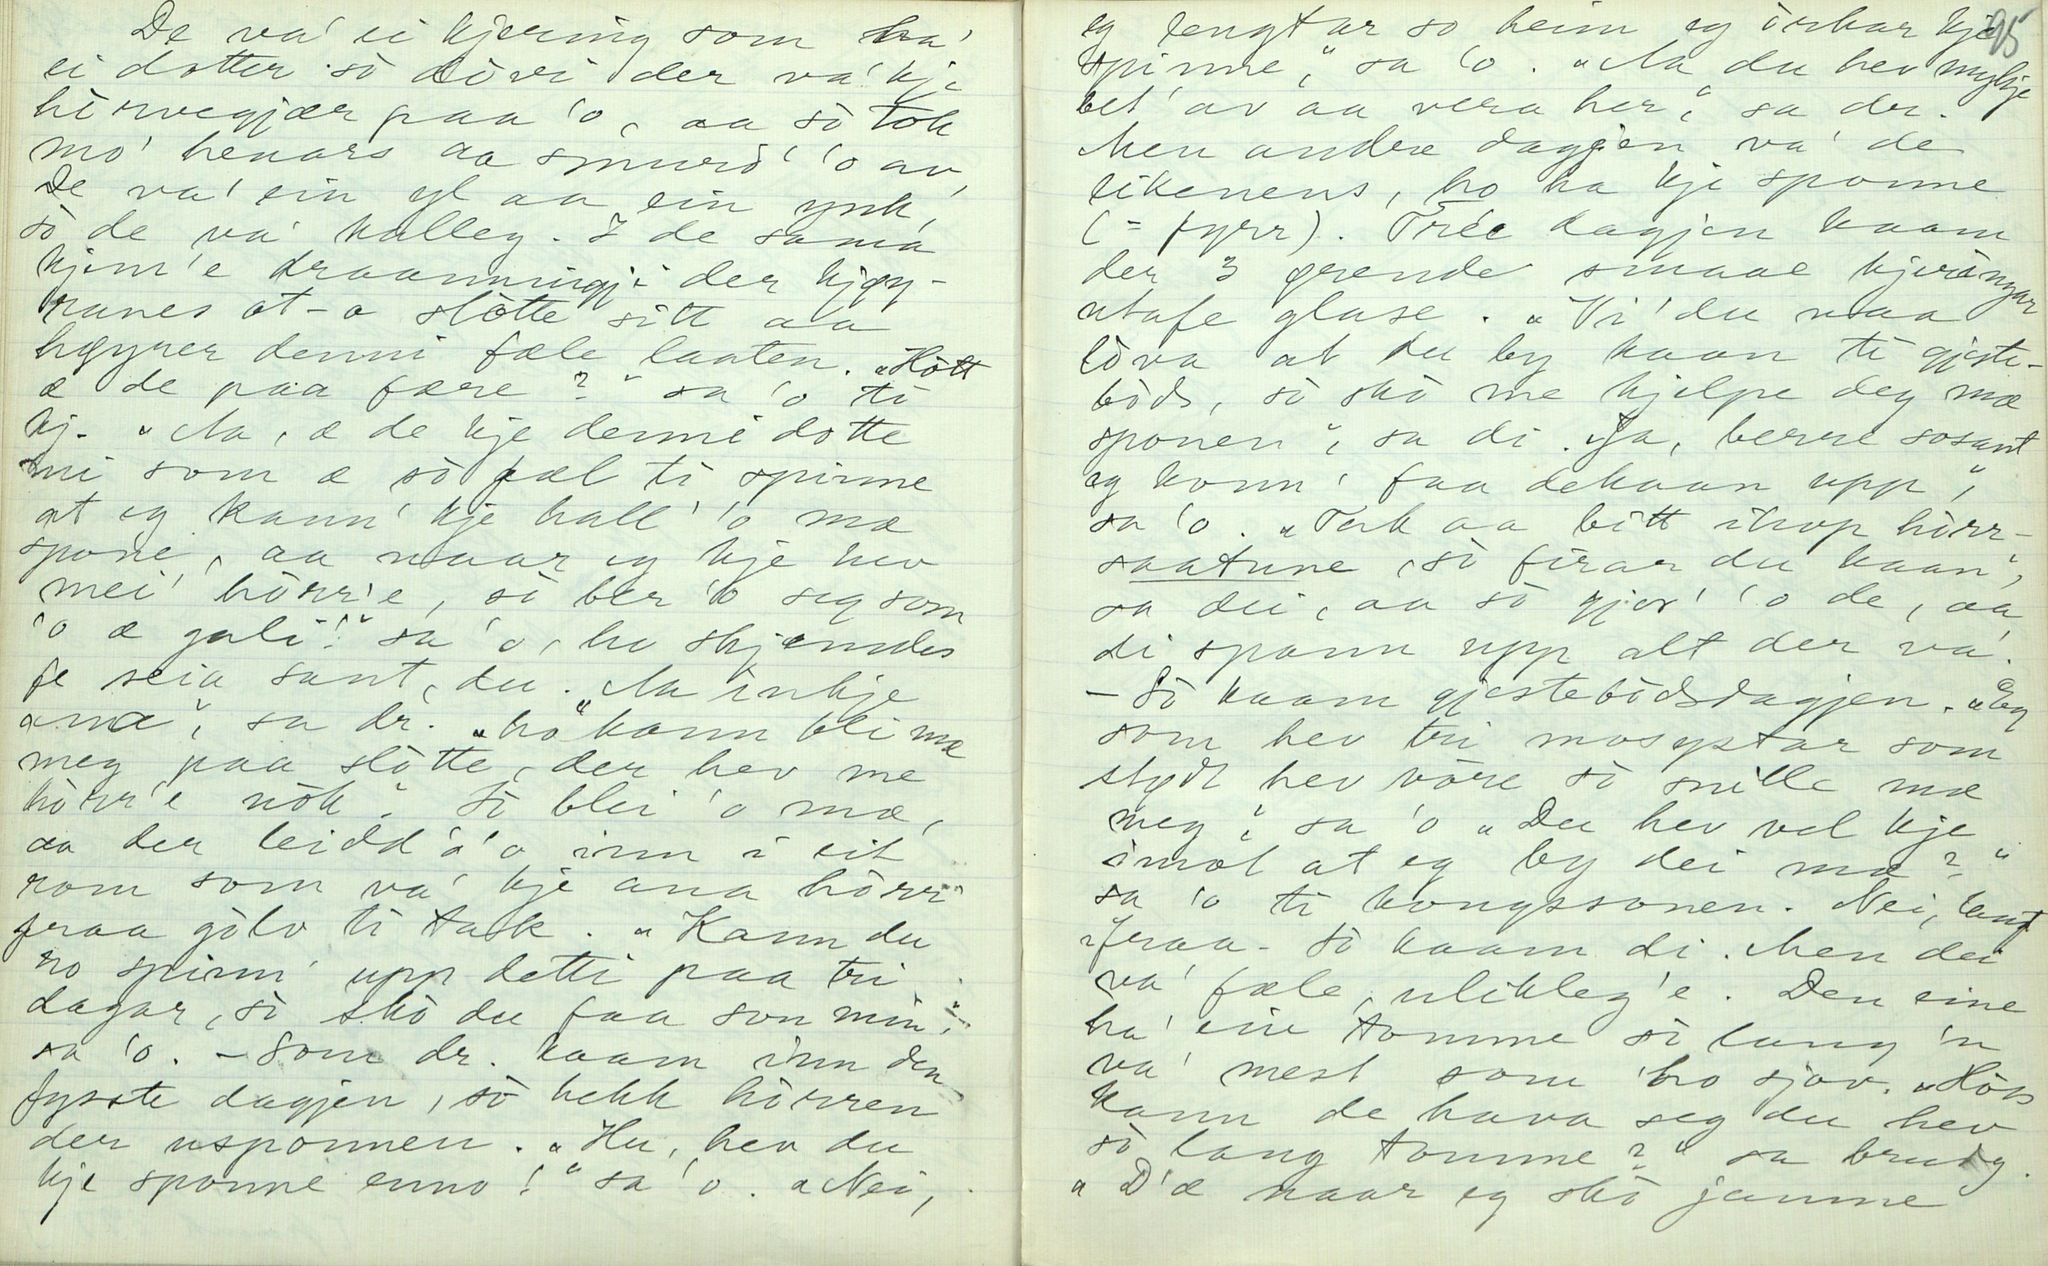 De va' ei kjering som ha'
ei dotter so dovi der va' kje
hørvegjær paa 'o, aa so tok
mo' hennars aa smurd' 'o av,
De va' ein yl aa ein ynk,
so de va' kalleg. I de sama
kjem'e draanningji der kjøy-
ranes at-a slotte sitt aa
høyrer denni fæle laaten. "Hott
æ de paa fære?" sa 'o ti
kj. "Aa, æ de kje denni dotte
mi som æ so fæl ti spinne
at eg kann' kje hall' 'o mæ
spone, aa naar eg kje hev
mei' hørr'e, so ber 'o seg som
'o æ gali!" sa 'o, ho skjemdes
fe seia sant, du. "Aa inkje
anna", sa dr. "ho kann bli mæ
meg paa slotte, der hev me
hørr'e nok". So blei 'o mæ,
aa der leidd'a 'o inn i eit
rom som va' kje ana hørr'
fraa golv ti tak. "Kann du
no spinn' upp detti paa tri
dagar, so sko du faa son min",
sa 'o. – Som dr. kaam inn den
fysste dagjen, so hekk hørren
der usponnen. "Hu, hev du
kje sponne enno!" sa 'o. "Nei,
95
eg lengtar so heim eg orkar kje
spinne", sa 'o. "Aa du hev mykje
bet' av aa vera her", sa dr.
Men andre dagjen va' de
likenens, ho ha kje sponne
(= fyrr). Trée dagjen kaam
der 3 grende smaae kjeringar
utafe glase. "Vi' du naa
lova at du by kaan ti gjeste-
bods, so sko me hjelpe deg mæ
sponen", sa di. "Ja, berre sosant
eg konn' faa dekaan upp",
sa 'o. "Tak aa bitt ihop hørr-
saatune, so firar du kaan",
sa dei, aa so gjor' 'o de, aa
di spann upp alt der va'.
– So kaam gjestebodsdagjen. "Eg
som hev tri mosystar som
stødt hev vore so snille mæ
meg", sa 'o "Du hev vel kje
imot at eg by dei mæ?"
sa 'o ti kongssonen. Nei, langt
ifraa – So kaam di. Men dei
va' fæle, ulikleg'e. Den eine
ha' ein tomme so lang 'n
va' mest som 'ho sjøv. "Hoss
kann de hava seg du hev
so lang tomme?" sa brudg.
"D'æ naar eg sko jamne